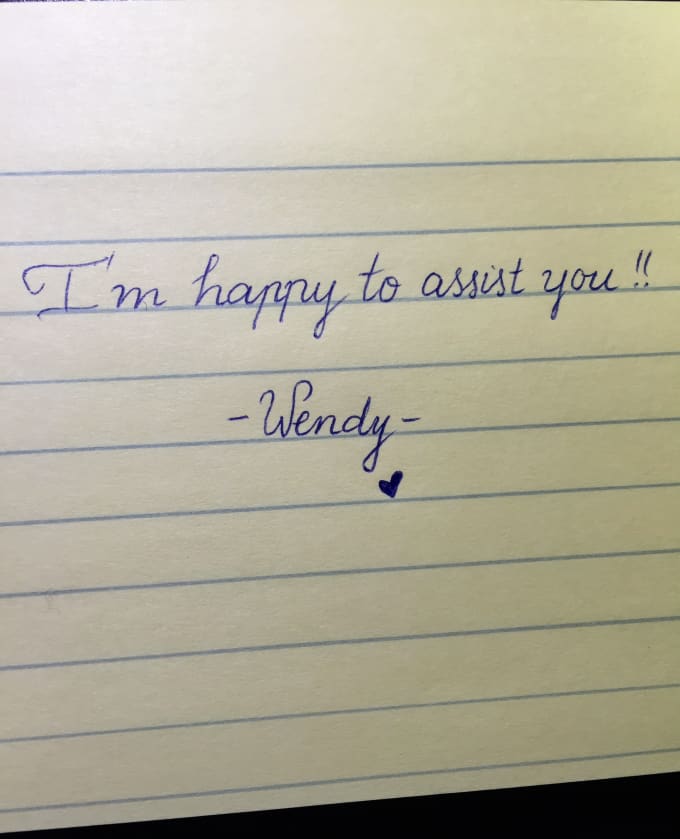 I'm happy to assist you!!
-Wendy-